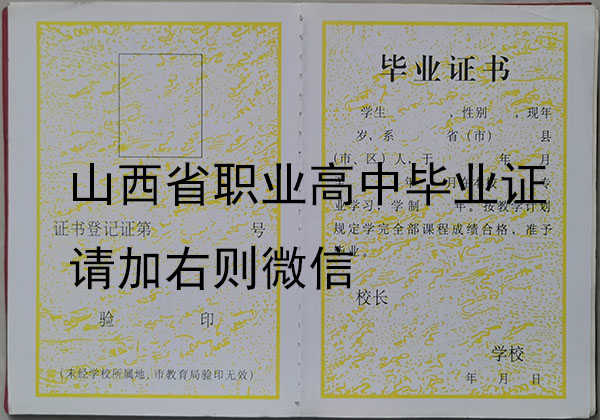 证书登记证第 号
验 印
(未经学校所属地，市教育局验印无效)
毕业证书
学生 ，性别 ，现年
岁，系 省(市) 县
(市、区)人，于 年 月
年 月 专
业学习，学制 年。按教学计划
规定学完全部课程成绩合格，准予
毕业。
校长
学校
年 月 日
山西省职业高中毕业证
请加右则微信